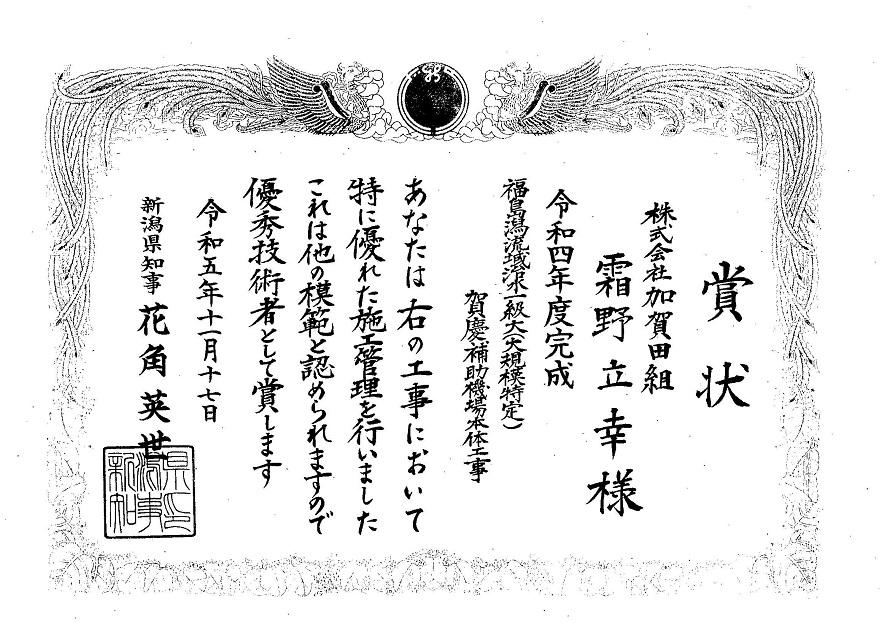 賞状
株式会社加賀田組
霜野立幸様
令和四年度完成
福島潟流域治水(一級大)(大規模特定)
賀慶補助機場本体工事
あなたは右の工事において
特に優れた施工管理を行いました
これは他の模範と認められますので
優秀技術者として賞します
令和五年十一月十七日
新潟県知事 花角英世
新潟県知事之印